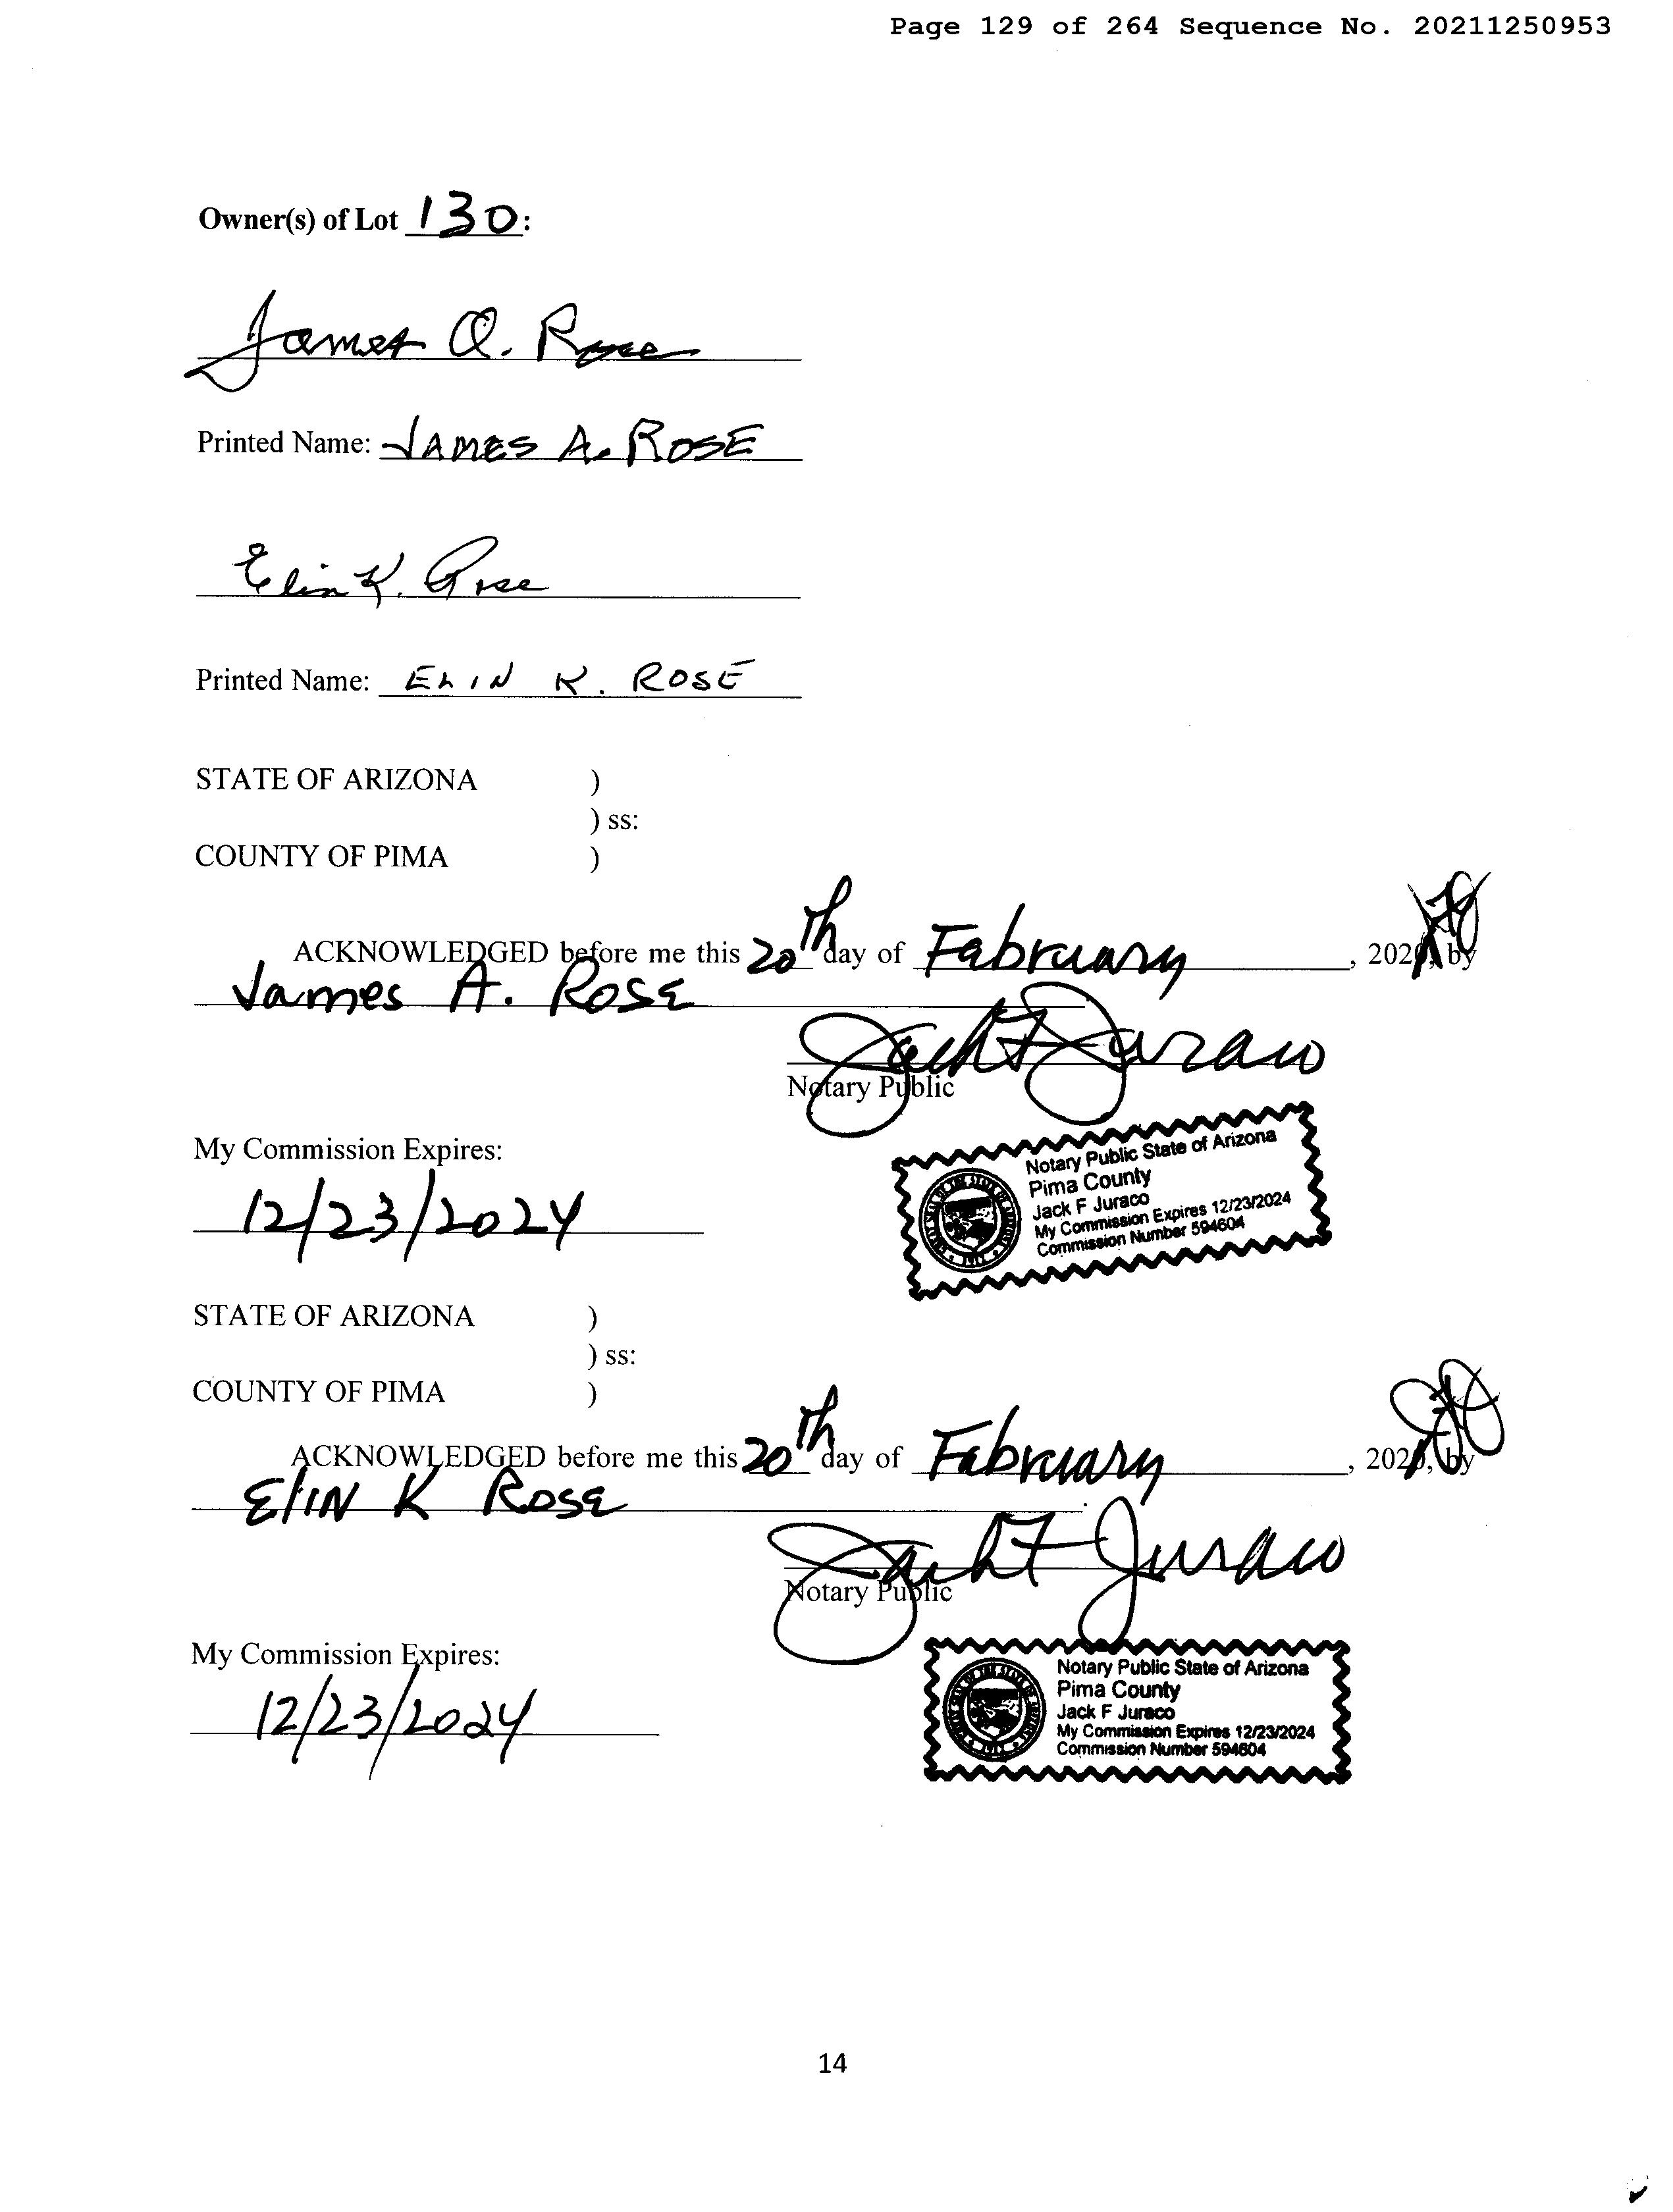 Page 129 of 264 Sequence No. 20211250953
Owner(s) of Lot 130:
James A. Rose
Printed Name: JAMES A. ROSE
Elin K. Rose
Printed Name: ELIN K. ROSE
STATE OF ARIZONA )
) ss:
COUNTY OF PIMA )
ACKNOWLEDGED before me this 20th day of February, 202 by
James A. Rose
Jack F Juraco
Notary Public
My Commission Expires:
12/23/2024
Notary Public State of Arizona
Pima County
Jack F Juraco
My Commission Expires 12/23/2024
Commission Number 594604
STATE OF ARIZONA )
) ss:
COUNTY OF PIMA )
ACKNOWLEDGED before me this 20th day of February, 202 by
Elin K Rose
Jack F Juraco
Notary Public
My Commission Expires:
12/23/2024
Notary Public State of Arizona
Pima County
Jack F Juraco
My Commission Expires 12/23/2024
Commission Number 594604
14